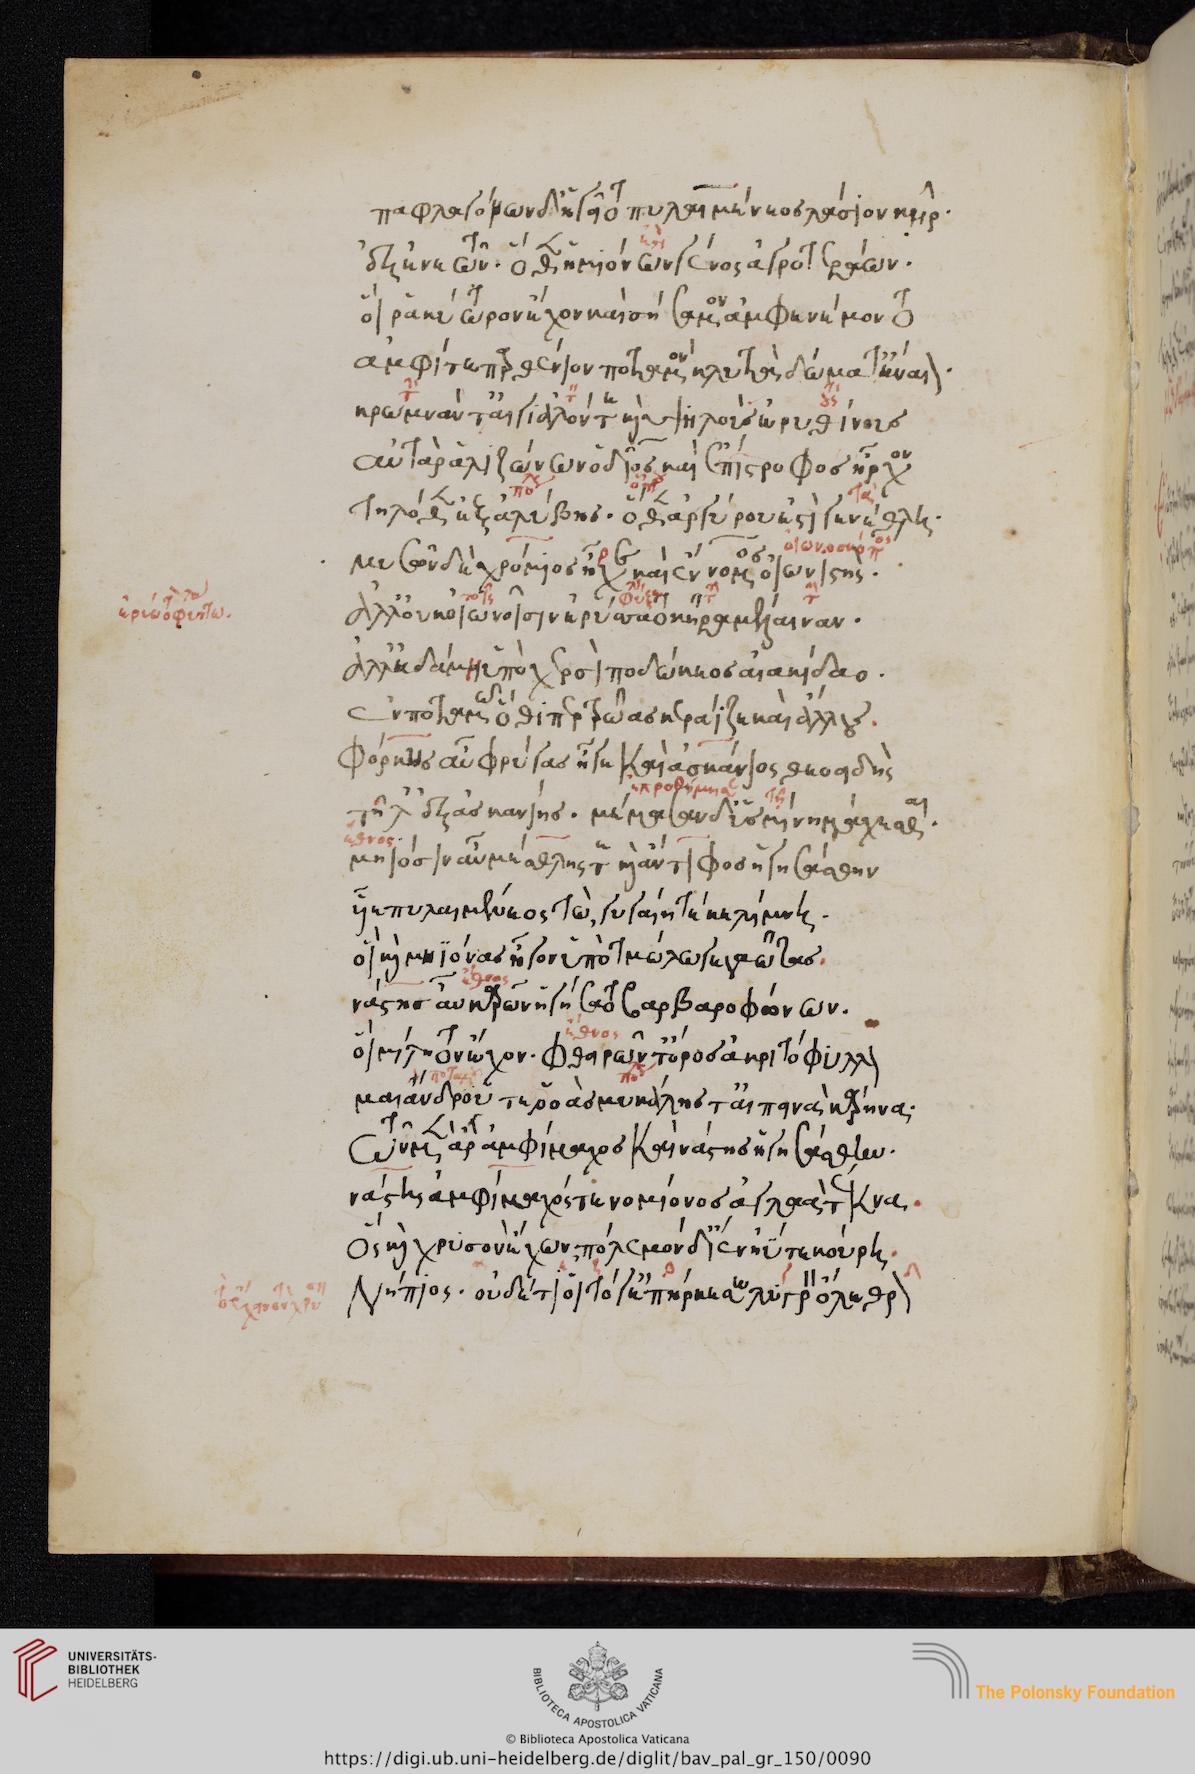 παφλαγόνων δ' ἡγεῖτο πυλαιμένεος λάσιον κῆρ.
ἐξ ἐνετῶν. ὅθεν ἡμιόνων γένος ἀγροτεράων.
οἵ ρα κύτωρον ἔχον καὶ σήσαμον ἀμφενέμοντο
ἀμφί τε παρθένιον ποταμὸν κλυτὰ δώματ' ἔναιον.
κρωμνάν τ' αἰγιαλόν τε καὶ ὑψηλοὺς ἐρυθίνους
αὐτὰρ ἁλιζώνων ὀδίος καὶ ἐπίστροφος ἦρχον
τηλόθεν ἐξ ἀλύβης. ὅθεν ἀργύρου ἐστὶ γενέθλη.
μυσῶν δὲ χρόμιος ἦρχε καὶ ἔννομος οἰωνιστής.
ἀλλ' οὐκ οἰωνοῖσιν ἐρύσατο κῆρα μέλαιναν.
ἀλλ' ἐδάμη ὑπὸ χερσὶ ποδώκεος αἰακίδαο.
ἐν ποταμῷ ὅθί περ τρῶας κεράϊζε καὶ ἄλλους.
φόρκυς αὖ φρύγας ἦγε καὶ ἀσκάνιος θεοειδὴς
τῆλ' ἐξ ἀσκανίης. μέμασαν δ' ὑσμῖνι μάχεσθαι.
μῄοσιν αὖ μέσθλης τε καὶ ἄντιφος ἡγησάσθην
υἷε πυλαιμένεος τὼ γυγαίη τέκε λίμνη.
οἳ καὶ μῄονας ἦγον ὑπὸ τμώλῳ γεγαῶτας.
νάστης αὖ καρῶν ἡγήσατο βαρβαροφώνων.
οἳ μίλητον ἔχον. φθειρῶν τ' ὄρος ἀκριτόφυλλον
μαιάνδρου τε ῥοὰς μυκάλης τ' αἰπεινὰ κάρηνα.
τῶν μὲν ἄρ' ἀμφίμαχος καὶ νάστης ἡγησάσθην.
νάστης ἀμφίμαχός τε νομίονος ἀγλαὰ τέκνα.
ὃς καὶ χρυσὸν ἔχων πόλεμον δ' ἴεν ἠΰτε κούρη.
Νήπιος. οὐδέ τι οἱ τό γ' ἐπήρκεσε λυγρὸν ὄλεθρον
UNIVERSITÄTS-
BIBLIOTHEK
HEIDELBERG
BIBLIOTECA APOSTOLICA VATICANA
The Polonsky Foundation
© Biblioteca Apostolica Vaticana
https://digi.ub.uni-heidelberg.de/diglit/bav_pal_gr_150/0090